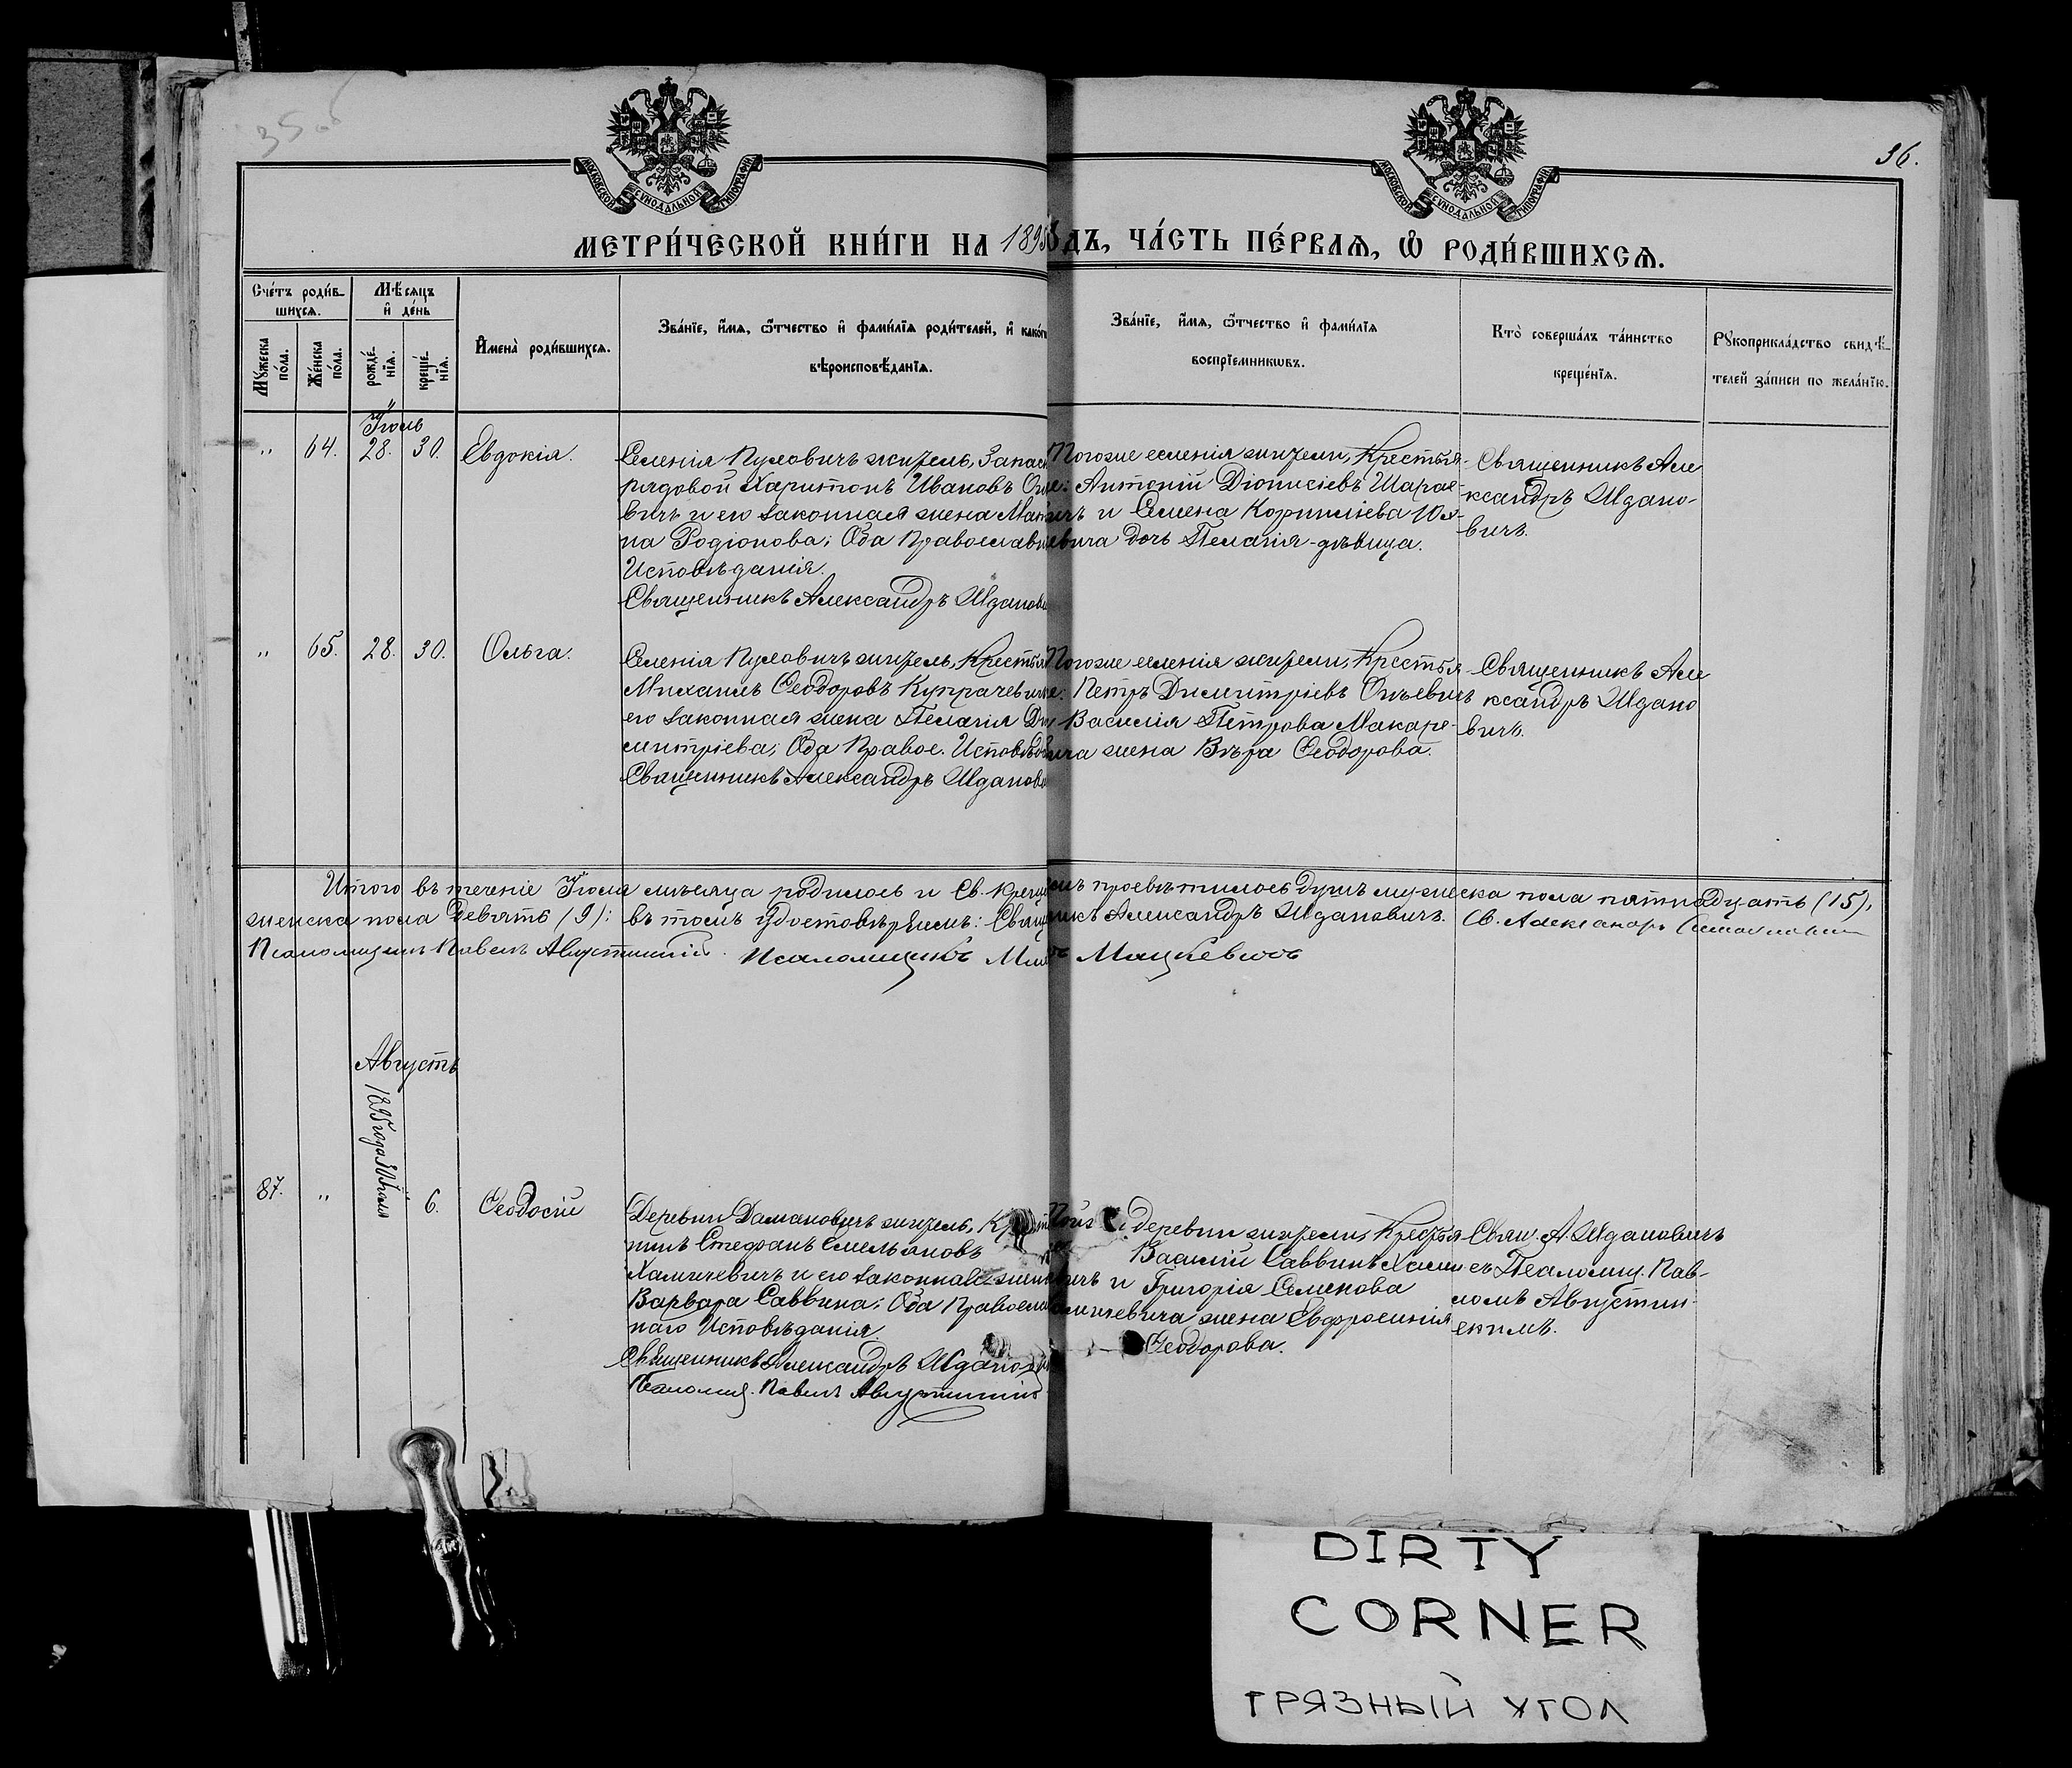 35 об
36.
МОСКОВСКОЙ СѴНОДАЛЬНОЙ ТИПОГРАФІИ
МОСКОВСКОЙ СѴНОДАЛЬНОЙ ТИПОГРАФІИ
МЕТРИ́ЧЕСКОЙ КНИ́ГИ НА 1895
ДЪ, ЧА́СТЬ ПЕ́РВАѦ, Ѿ РОДИ́ВШИХСѦ.
Сче́тъ роди́в-
шихсѧ.
Мѣ́сѧцъ
и҆ де́нь
Мꙋ́жеска
по́ла.
Же́нска
по́ла.
рожде́-
нїѧ.
креще́-
нїѧ.
И҆мена̀ роди́вшихсѧ.
Зва́нїе, и҆́мѧ, ѻ҆́тчество и҆ фами́лїѧ роди́телей, и҆ како́гѡ
вѣроисповѣ́данїѧ.
Зва́нїе, и҆́мѧ, ѻ҆́тчество и҆ фами́лїѧ
воспрїе́мникѡвъ.
Кто̀ соверша́лъ та́инство
креще́нїѧ.
Рꙋкоприкла́дство свидѣ́-
телей за́писи по жела́нїю.
Іюль
" 64. 28. 30. Евдокія.
Селенія Пуховичъ житель, Запас
рядовой Харитонъ Ивановъ
вичъ и его законная жена
на Родіонова; Оба Православн
Исповѣданія.
Священникъ Александръ Жданови
Тогоже селенія жители, Крестья-
не: Антоній Діонисіевъ
ичъ и Семена Корниліева
евича дочь Пелагія-дѣвица.
Священникъ Але
ксандръ Ждано-
вичъ.
" 65. 28. 30. Ольга.
Селенія Пуховичъ житель, Крестья
Михаилъ Ѳеодоровъ Купрачевич
его законная жена Пелагія Ди
митріева; Оба Правос. Исповѣд
Священникъ Александръ Жданови
Тогоже селенія жители, Крестья-
не: Петръ Димитріевъ
Василія Петрова Макаре-
вича жена Вѣра Ѳеодорова.
Священникъ Але
ксандръ Ждано
вичъ.
Итого въ теченіе Іюля мѣсяца родилось и Св. Крещеніемъ просвѣтилось душъ мужеска пола пятнадцать (15),
женска пола девять (9); въ томъ удостовѣряемъ: Священникъ Александръ Ждановичъ. Св. Александръ
Псаломщикъ Павелъ Августинскій. Псаломщикъ Мацкевичъ
Августъ
1895 года Іюля
87. " 6. Ѳеодосій
Деревни Дамановичъ житель,
нинъ Стефанъ Емельяновъ
Хамичевичъ и его законная жена
Варвара Саввина; Оба Православ
наго Исповѣданія.
Священникъ Александръ Жданови
Псаломщ. Павелъ Августинскій
деревни жители, Крестья-
Василій Саввинъ Хами
вичъ и Григорія Семенова
Хамичевича жена Евфросинія
Ѳеодорова.
Свящ. А. Ждановичъ
съ Псаломщ. Пав-
ломъ Августин-
скимъ.
DIRTY
CORNER
ГРЯЗНЫЙ УГОЛ